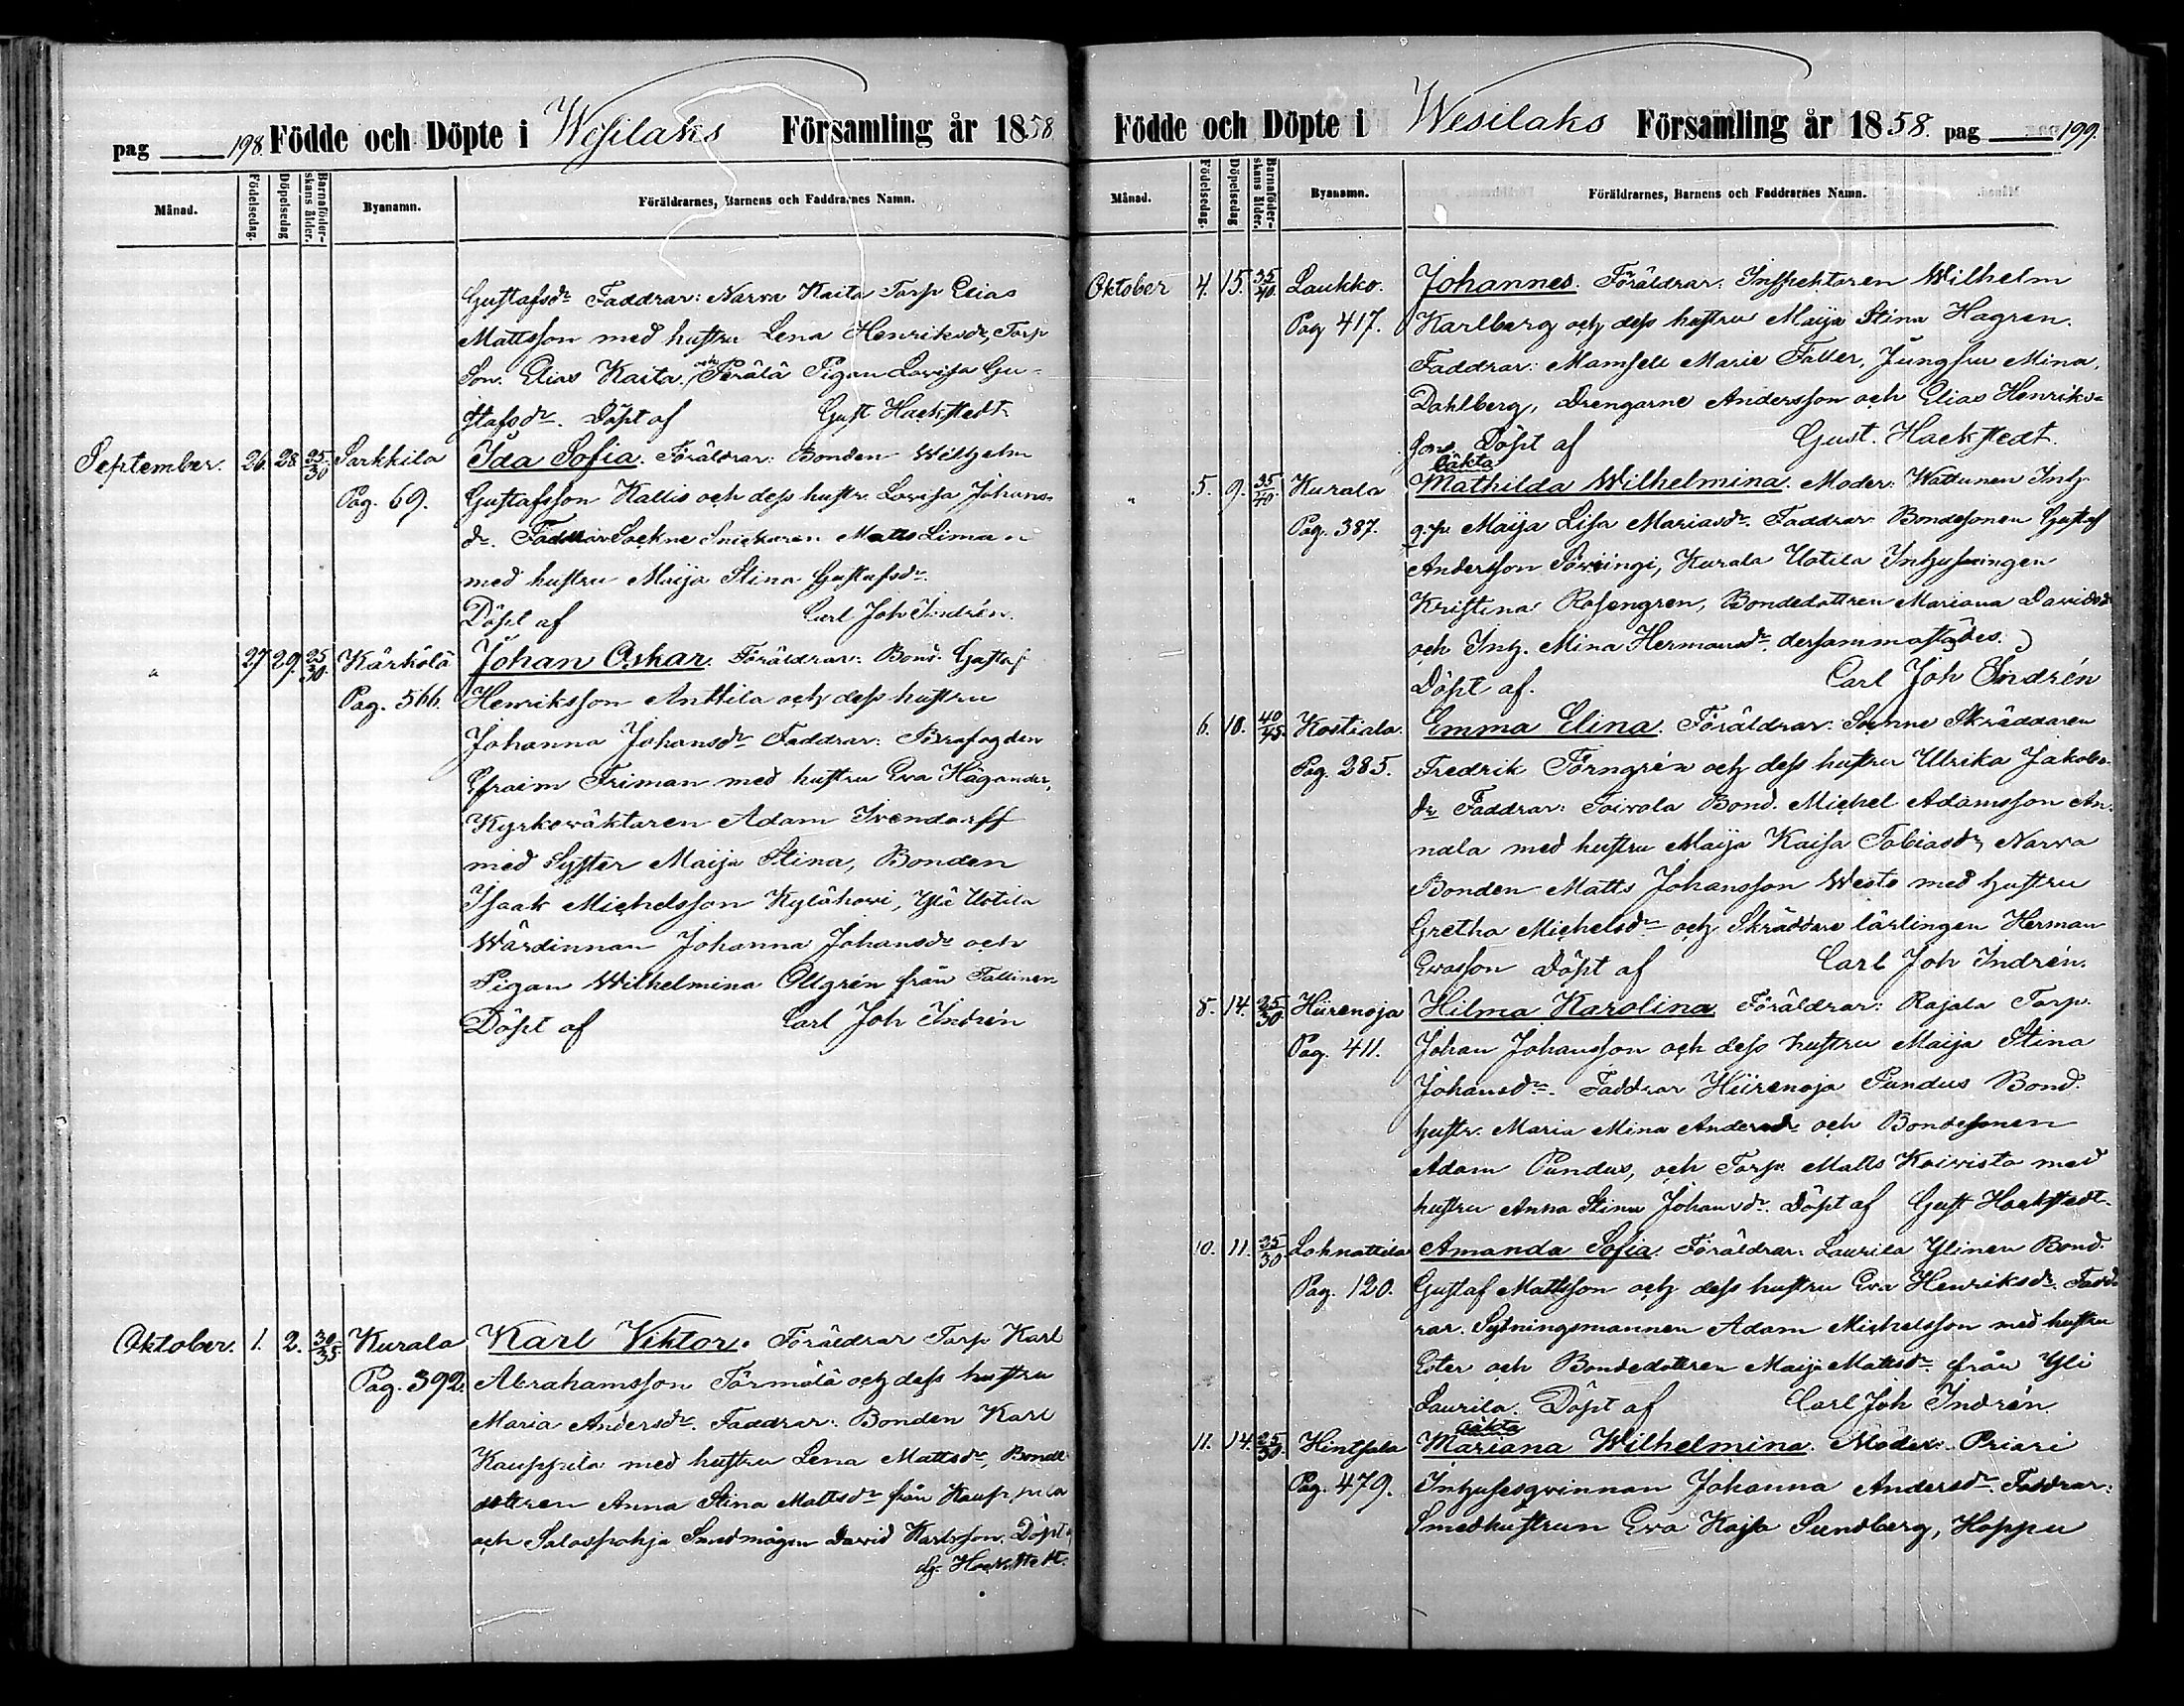 pag 198. Födde och Döpte i Wesilaks Församling år 1858
Månad. Födelsedag. Döpelsedag Barnaföderskans ålder. Byanamn. Föräldrarnes, Barnens och Faddrarnes Namn.
Gustafsdr Faddrar: Narva Kaita Torp Elias
Mattsson med hustru Lena Henriksdr, Torp
Son. Elias Kaita, och Perälä Pigan Lovisa Gu-
stafsdr. Döpt af Gust Hackstedt
September. 26. 28 25/30 Sarkkila Ida Sofia. Föräldrar: Bonden Wilhelm
Pag. 69. Gustafsson Kallis och dess hustr. Lovisa Johans-
dr. Faddrar Sockne Snickaren Matts Liman
med hustru Maija Stina Gustafsdr.
Döpt af Carl Joh Indrén.
" 27 29. 25/30. Kärkölä Johan Oskar. Föräldrar: Bond. Gustaf
Pag. 566. Henriksson Anttila och dess hustru
Johanna Johansdr Faddrar: Brofogden
Efraim Friman med hustru Eva Hägander,
Kyrkoväktaren Adam Ivendorff
med Syster Maija Stina, Bonden
Isaak Michelsson Kylähovi, Ylä Uotila
Wärdinnan Johanna Johansdr och
Pigan Wilhelmina Ollgrén från Tallinen
Döpt af Carl Joh Indrén
Oktober. 1. 2. 30/35. Kurala Karl Viktor. Föräldrar Torp Karl
Pag. 392. Abrahamsson Törmälä och dess hustru
Maria Andersdr. Faddrar: Bonden Karl
Kauppila med hustru Lena Mattsdr, Bonde
dottren Anna Stina Mattsdr från Kauppila
och Salospohja Smedmågen David Karlsson. Döpt
Hackstedt.
Födde och Döpte i Wesilaks Församling år 1858. pag 199.
Månad. Födelsedag. Döpelsedag Barnaföderskans ålder. Byanamn. Föräldrarnes, Barnens och Faddrarnes Namn.
Oktober 4. 15. 35/40. Laukko. Johannes. Föräldrar: Inspektoren Wilhelm
Pag 417. Karlberg och dess hustru Maija Stina Hagren.
Faddrar: Mamsell Marie Faller, Jungfru Mina
Dahlberg, Drengarne Andersson och Elias Henriks-
son. Döpt af Gust. Hackstedt.
oäkta
" 5. 9. 35/40. Kurala Mathilda Wilhelmina. Moder: Wattunen Inh.
Pag. 387. q.p. Maija Lisa Mariasdr. Faddrar Bondesonen Gustaf
Andersson Söviingi, Kurala Uotila Inhysingen
Kristina Rosengren, Bondedottren Mariana Davidsd
och Inh. Mina Hermansdr. dersammastädes.
Döpt af. Carl Joh Indrén
6. 10. 40/45. Kostiala. Emma Elina. Föräldrar: Sockne Skräddaren
Pag. 285. Fredrik Törngrén och dess hustru Ulrika Jakobs-
dr Faddrar: Toivola Bond. Michel Adamsson An-
nala med hustru Maija Kaisa Tobiasdr, Narva
Bonden Matts Johansson Westo med hustru
Gretha Michelsdr och Skräddare lärlingen Herman
Evasson Döpt af Carl Joh Indrén.
8. 14. 25/30 Hiirenoja Hilma Karolina. Föräldrar: Rajala Torp.
Pag. 411. Johan Johansson och dess hustru Maija Stina
Johansdr. Faddrar Hiirenoja Pundus Bond.
hustr. Maria Mina Andersdr och Bondesonen
Adam Pundus, och Torp. Matts Koivisto med
hustru Anna Stina Johansdr. Döpt af Gust Hackstedt.
10. 11. 25/30. Lahnattila Amanda Sofia. Föräldrar: Laurila Ylinen Bond.
Pag. 120. Gustaf Mattsson och dess hustru Eva Henriksdr. Fadd-
rar. Sytningsmannen Adam Michelsson med hustru
Ester och Bondedottren Maija Mattsdr. från Yli
Laurila. Döpt af Carl Joh Indrén.
oäkta
11. 14. 25/30. Hintsala Mariana Wilhelmina. Moder: Priari
Pag. 479. Inhysesqvinnan Johanna Andersdr. Faddrar:
Smedhustrun Eva Kajsa Sundberg, Hoppu